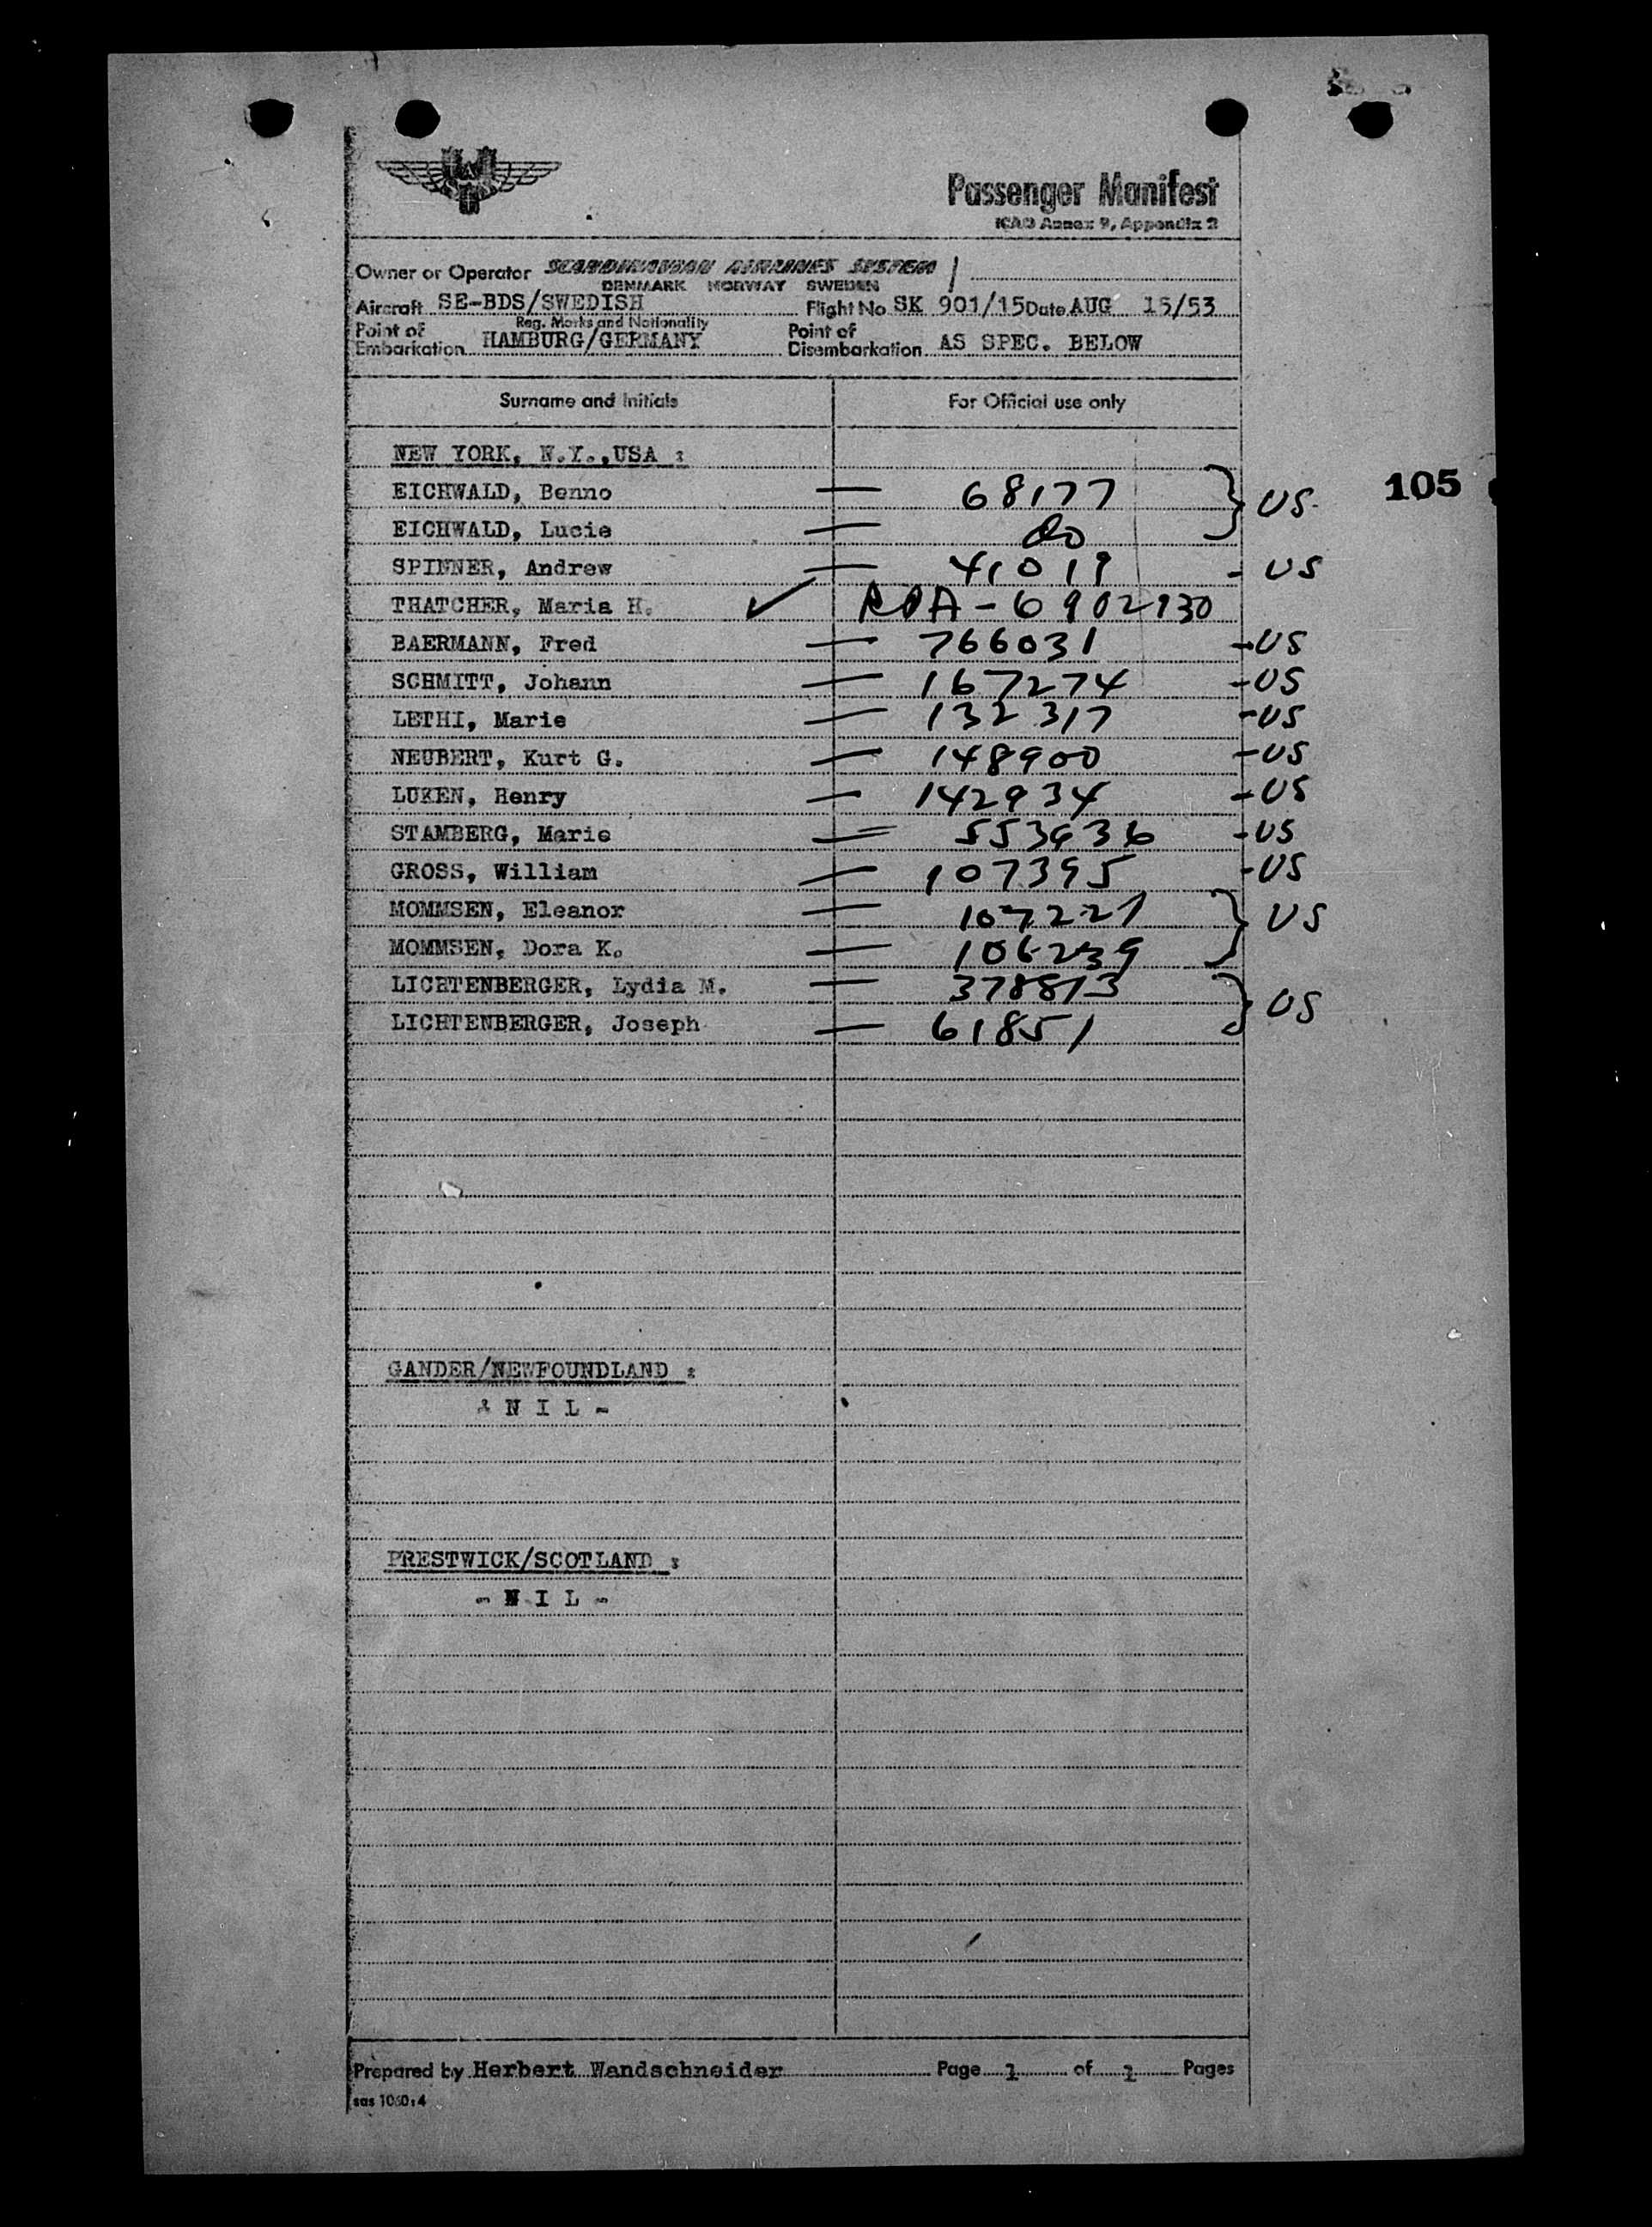 Passenger Manifest
ICAO Annex 9, Appendix 2
Owner or Operator SCANDINAVIAN AIRLINES SYSTEM
DENMARK NORWAY SWEDEN
Aircraft SE-BDS/SWEDISH Flight No SK 901/15 Date AUG 15/53
Reg. Marks and Nationality
Point of Embarkation HAMBURG/GERMANY Point of Disembarkation AS SPEC. BELOW
Surname and Initials For Official use only
NEW YORK, N.Y.,USA :
105
EICHWALD, Benno — 68177 } US
EICHWALD, Lucie — do
SPINNER, Andrew — 41019 - US
THATCHER, Maria H. ✓ 6902930
BAERMANN, Fred — 766031 - US
SCHMITT, Johann — 167274 - US
LETHI, Marie — 132317 - US
NEUBERT, Kurt G. — 148900 - US
LUKEN, Henry — 142934 - US
STAMBERG, Marie — - US
GROSS, William — 107395 - US
MOMMSEN, Eleanor — 107221 } US
MOMMSEN, Dora K. — 106239
LICHTENBERGER, Lydia M. — 378813 } US
LICHTENBERGER, Joseph — 61851
GANDER/NEWFOUNDLAND :
- N I L -
PRESTWICK/SCOTLAND :
- N I L -
Prepared by Herbert Wandschneider Page 1 of 1 Pages
sas 1060:4